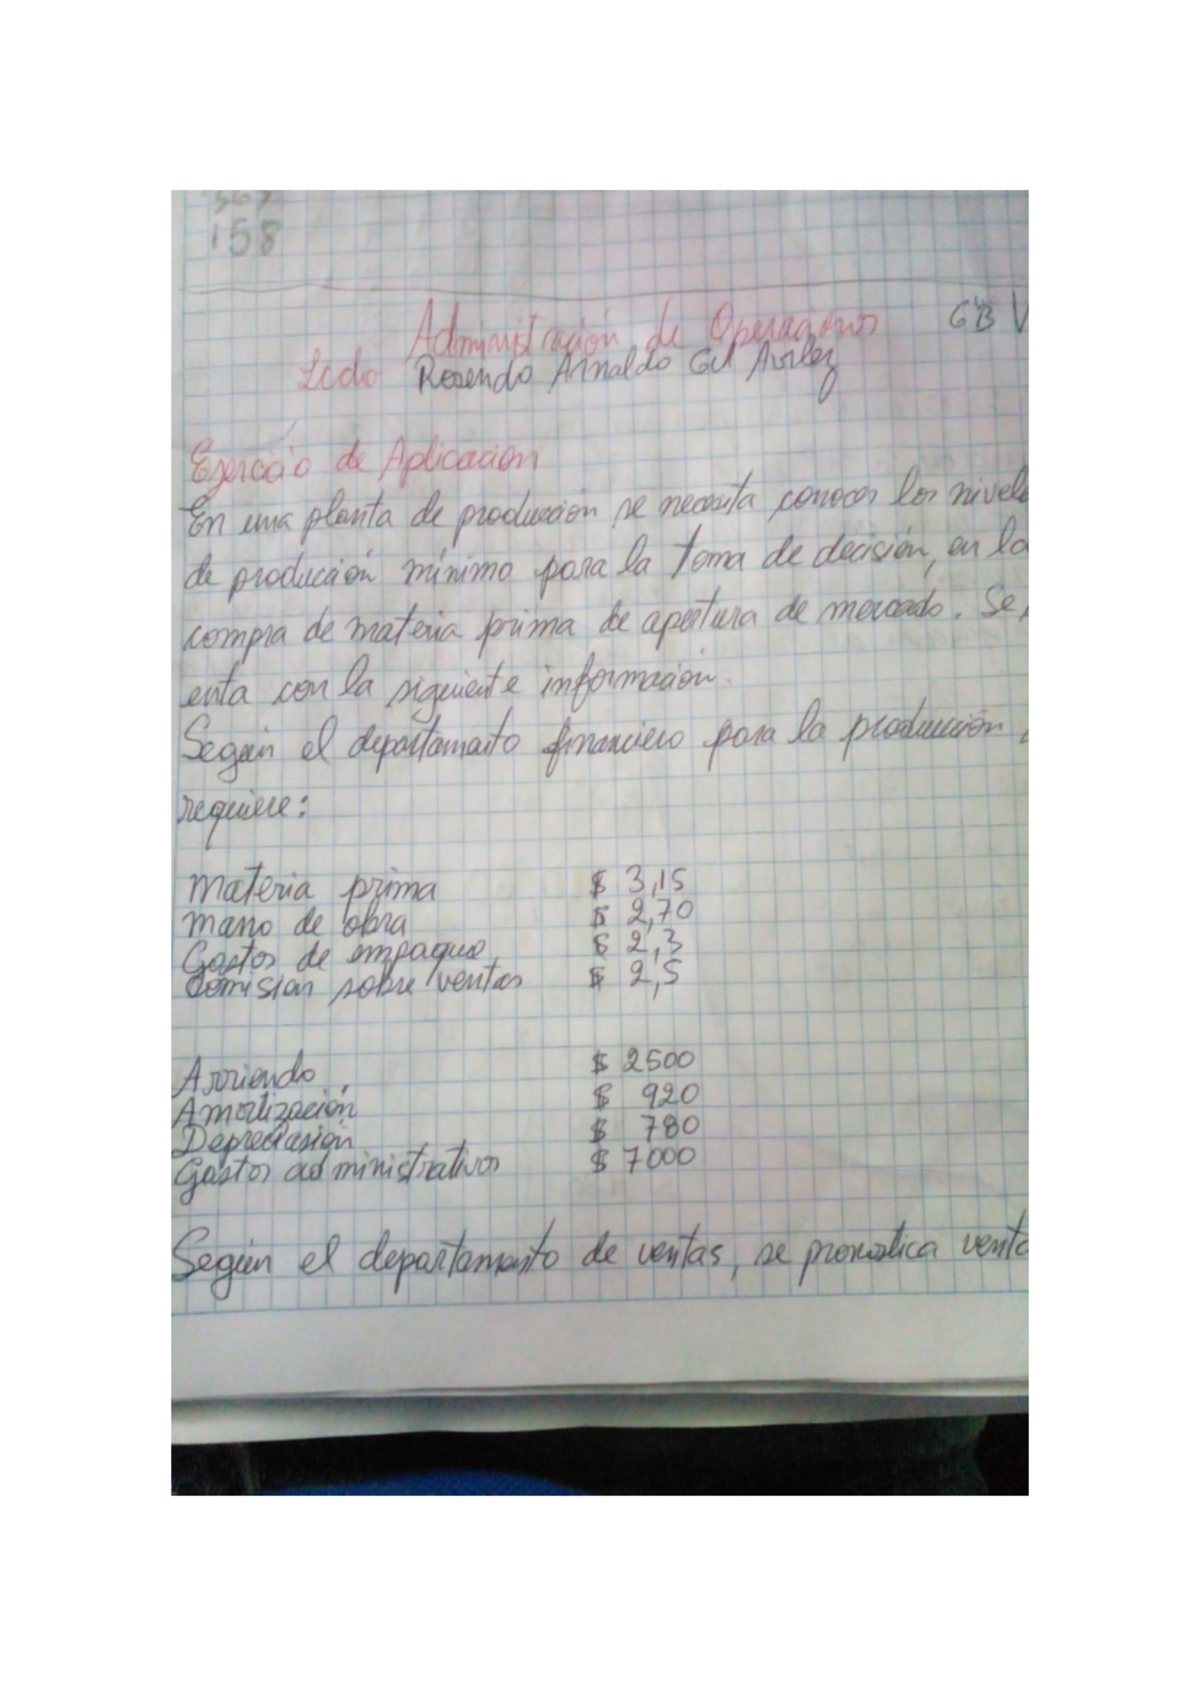 158
Administración de Operaciones 6B V
Lcdo Rosendo Arnaldo Gil Avilez
Ejercicio de Aplicacion
En una planta de producción se necesita conocer los nivele
de produción mínimo para la toma de decisión, en la
compra de materia prima de apertura de mercado. Se
enta con la siguiente información.
Según el departamento financiero para la producción
requiere:
Materia prima $ 3,15
Mano de obra $ 2,70
Gastos de empaque $ 2,3
Comision sobre ventas $ 2,5
Arriendo $ 2500
Amortización $ 920
Depreciasión $ 780
Gastos administrativos $ 7000
Según el departamento de ventas, se pronostica venta